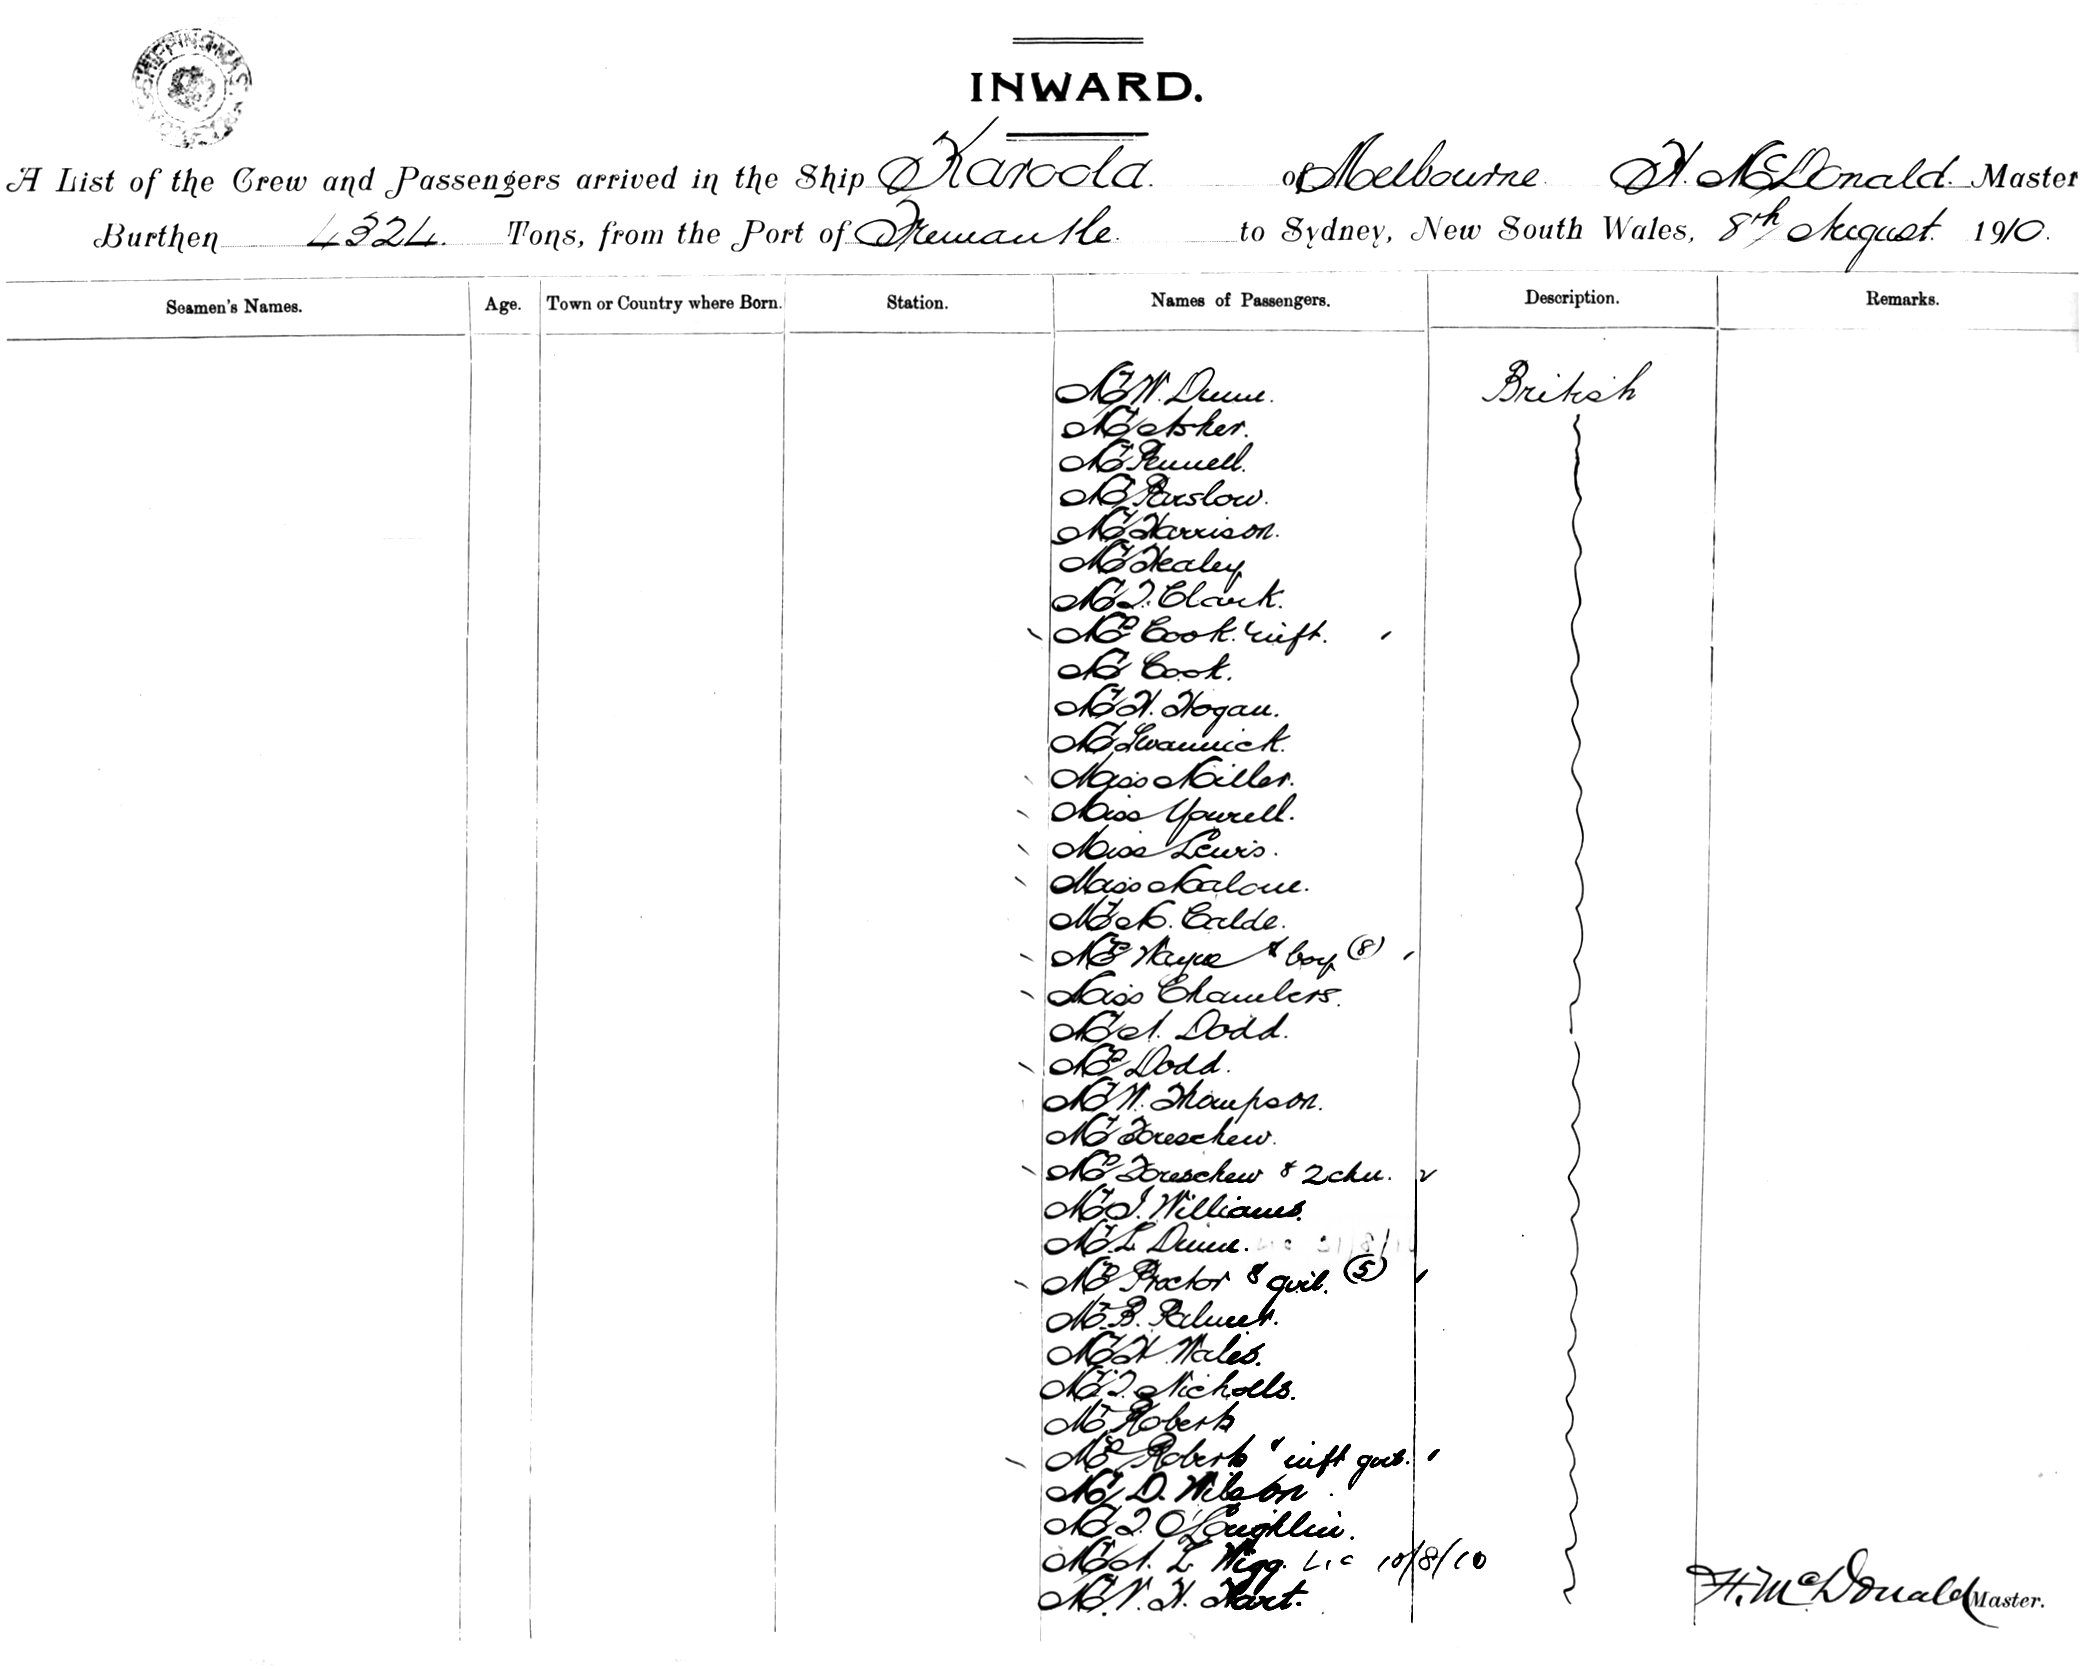 INWARD.
A List of the Crew and Passengers arrived in the Ship Karoola. of Melbourne. H. McDonald. Master
Burthen 4324. Tons, from the Port of Fremantle. to Sydney, New South Wales, 8th August. 1910.
Seamen's Names. Age. Town or Country where Born. Station. Names of Passengers. Description. Remarks.
Mr W. Dunn. British
Mr Asher.
Mr Pennell.
Mr Parslow.
Mr Harrison.
Mr Healey
Mr T. Clark.
Mrs Cook & inft.
Mr Cook.
Mr H. Hogan.
Mr Swannick.
Miss Miller.
Miss Yourell.
Miss Lewis.
Miss Malone.
Mr N. Calde.
Mrs Wayne & boy (8)
Miss Chambers.
Mr A. Dodd.
Mrs Dodd.
Mr W. Thompson.
Mr Treschew.
Mrs Treschew & 2 chn.
Mr J. Williams.
Mr L. Dunn.
Mrs Proctor & girl. (5)
Mr B. Palmer.
Mr H. Wales.
Mr T. Nicholls.
Mr Roberts
Mrs Roberts & inft girl.
Mr D. Wilson.
Mr T. O'Loughlin.
Mr A. L. Wigg. 10/8/10
Mr V. H. Hart. H. McDonald Master.